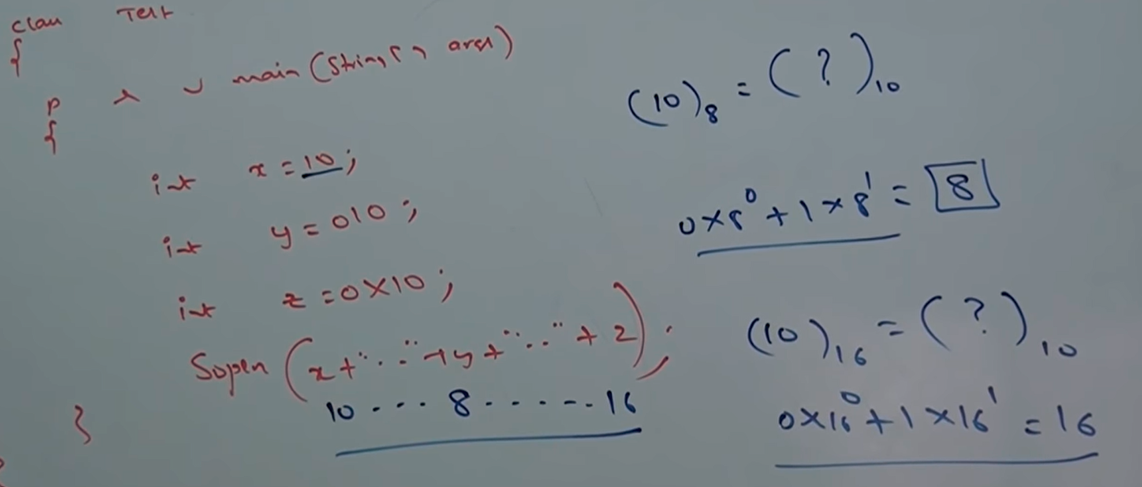 class Test
{
p s v main(String[] args)
{
int x = 10;
int y = 010;
int z = 0X10;
Sopln(x+"..."+y+"..."+z);
10 ... 8 ...... 16
}
(10)₈ = (?)₁₀
0×8⁰+1×8¹ = 8
(10)₁₆ = (?)₁₀
0×16⁰+1×16¹ = 16